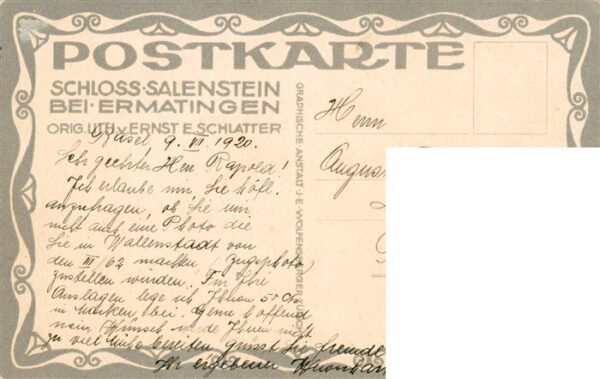 POSTKARTE
SCHLOSS·SALENSTEIN
BEI·ERMATINGEN
ORIG. LITH. v. ERNST E. SCHLATTER
GRAPHISCHE ANSTALT J. E. WOLFENSBERGER ZÜRICH
Basel 9. VI. 1920.
Sehr geehrter Herr Rapold!
Ich erlaube mir, Sie höfl.
anzufragen, ob Sie mir
nicht auch eine Photo die
Sie in Wallenstadt von
den III/62 machten (Zugsphoto)
zustellen würden. Für Ihre
Auslagen lege ich Ihnen 50 Cts
in Marken bei. Gerne hoffend
mein Wunsch werde Ihnen nicht
zu viel Mühe bereiten grüsst Sie
Ihr ergebener
Herrn
August